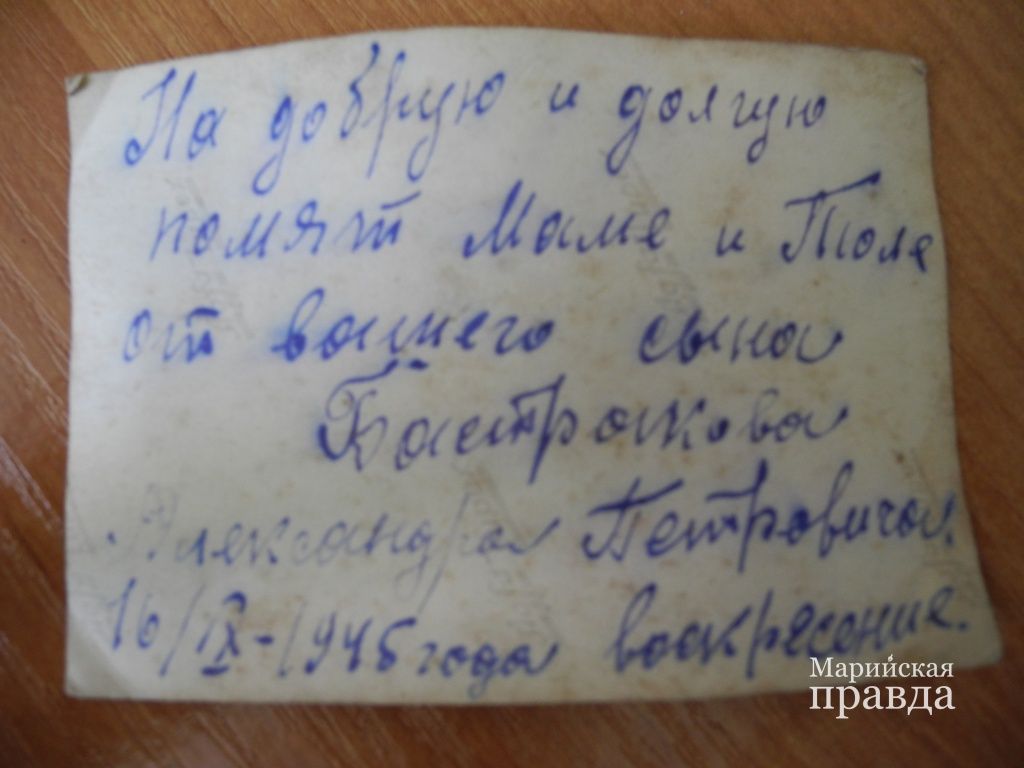 На добрую и долгую
помят Маме и Толе
от вашего сына
Бастракова
Александра Петровича.
16/IX-1945 года воскресение.
Марийская
правда